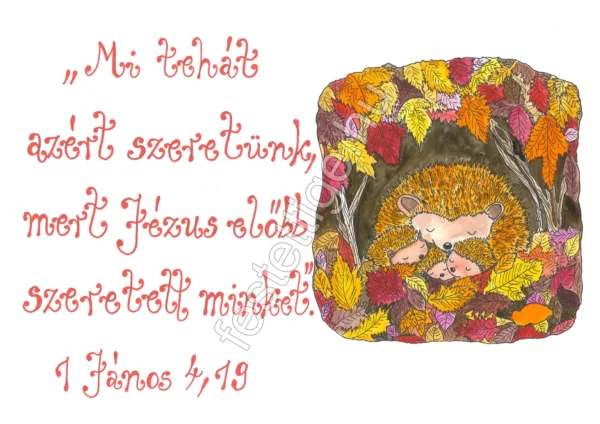 „Mi tehát
azért szeretünk,
mert Jézus előbb
szeretett minket."
1 János 4,19
festettige.hu